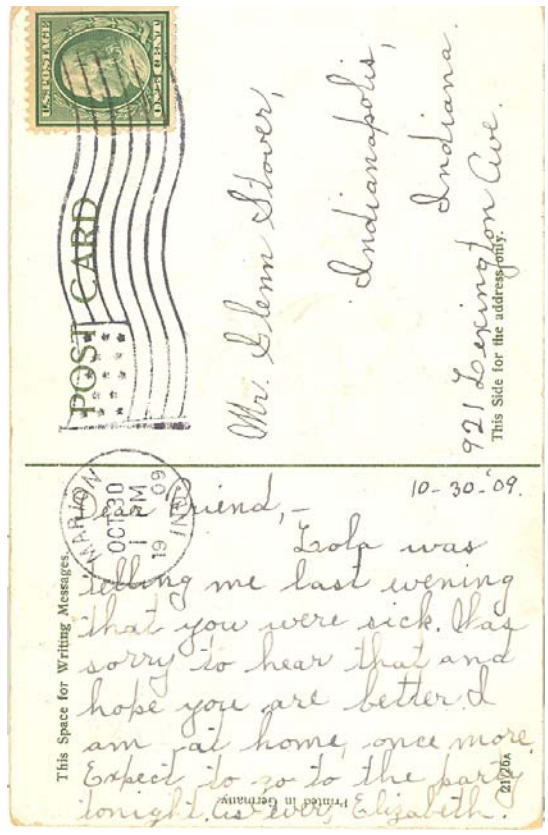 U.S. POSTAGE
ONE CENT
POST CARD
Mr. Glenn Stover,
Indianapolis,
Indiana.
921 Lexington Ave.
This Side for the address only.
MARION
OCT 30
1 PM
19 09
IND.
This Space for Writing Messages.
10-30-'09.
Dear Friend,-
Lola was
telling me last evening
that you were sick. Was
sorry to hear that and
hope you are better. I
am at home, once more.
Expect to go to the party
tonight. As ever, Elizabeth.
Printed in Germany.
2126A